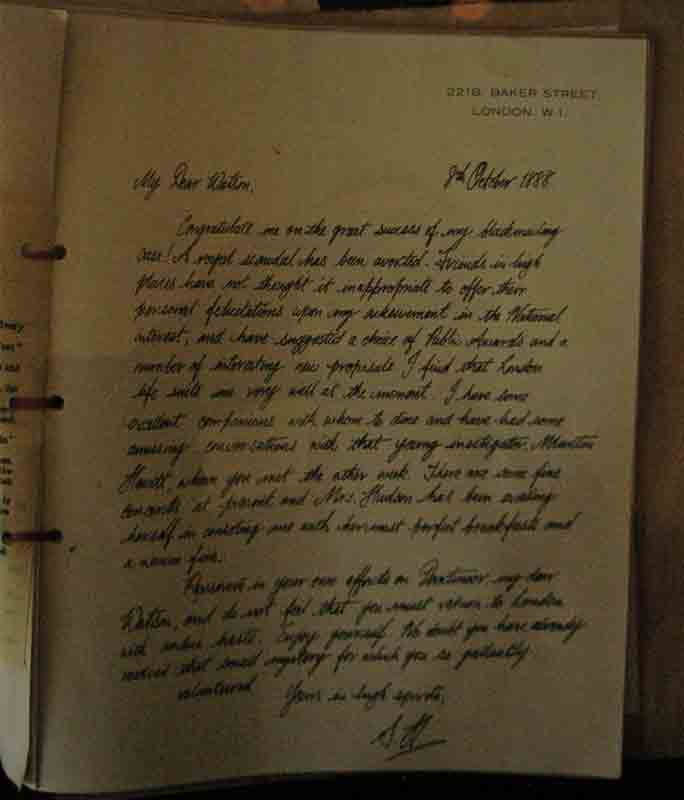 221B, BAKER STREET,
LONDON. W.1.
My Dear Watson,
8th October 1888
Congratulate me on the great success of my blackmailing
case! A royal scandal has been averted. Friends in high
places have not thought it inappropriate to offer their
personal felicitations upon my achievement in the National
interest, and have suggested a choice of Public Awards and a
number of interesting new proposals. I find that London
life suits me very well at the moment. I have some
excellent companions with whom to dine and have had some
amusing conversations with that young investigator, Martin
Hewitt, whom you met the other week. There are some fine
concerts at present and Mrs. Hudson has been
herself in me with her most perfect breakfasts and
a fire.
Persevere in your own efforts on Dartmoor, my dear
Watson, and do not feel that you must return to London
with undue haste. Enjoy yourself. No doubt you have already
that small mystery for which you so gallantly
volunteered
Yours in high spirits,
S H